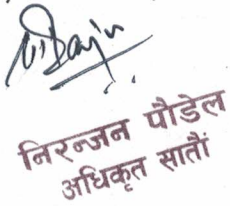 निरन्जन पौडेल
अधिकृत सातौं